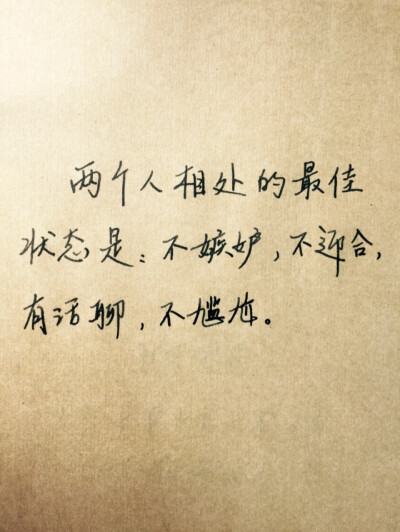 两个人相处的最佳
状态是：不嫉妒，不迎合，
有话聊，不尴尬。